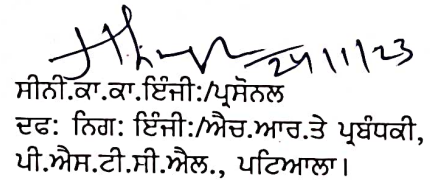 24/11/23
ਸੀਨੀ.ਕਾ.ਕਾ.ਇੰਜੀ:/ਪ੍ਰਸੋਨਲ
ਦਫ: ਨਿਗ: ਇੰਜੀ:/ਐਚ.ਆਰ.ਤੇ ਪ੍ਰਬੰਧਕੀ,
ਪੀ.ਐਸ.ਟੀ.ਸੀ.ਐਲ., ਪਟਿਆਲਾ।